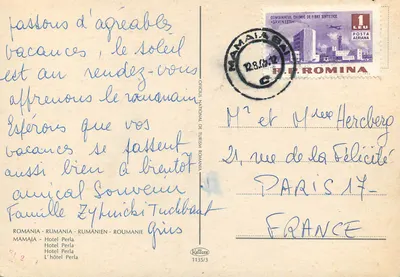 passons d'agreables
vacances, le soleil
est au rendez-vous
apprenons le roumain
Espérons que vos
vacances se passent
aussi bien à bientôt
amical Souvenir
Famille
ROMANIA - RUMANIA - KUMÄNIEN - ROUMANIE
MAMAJA - Hotel Perla
Hotel Perla
Hotel Perla
L'hôtel Perla
OFICIUL NATIONAL DE TURISM ROMANIA
1135/3
MAMAIA
12.8.
1 LEU
POSTA AERIANA
R.P. ROMINA
Mr et Mme Hercberg
21, rue de la Félicité
PARIS 17-
FRANCE